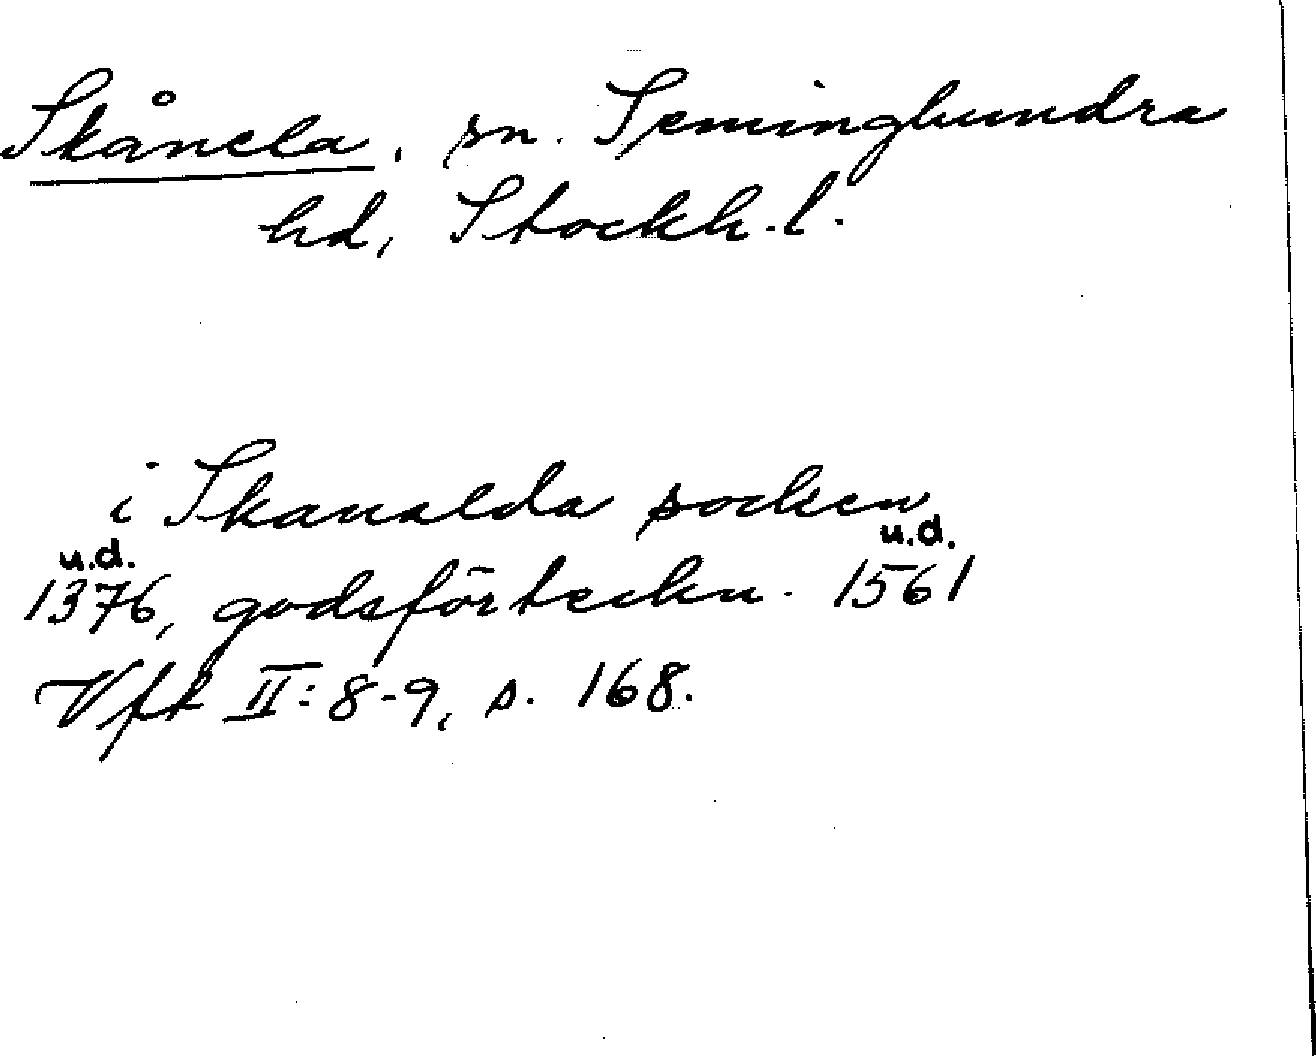 Skånela, sn. Seminghundra
hd, Stockh. l.
i Skanalda socken
u.d. u.d.
1376, godsförteckn. 1561
Vft II: 8-9, s. 168.